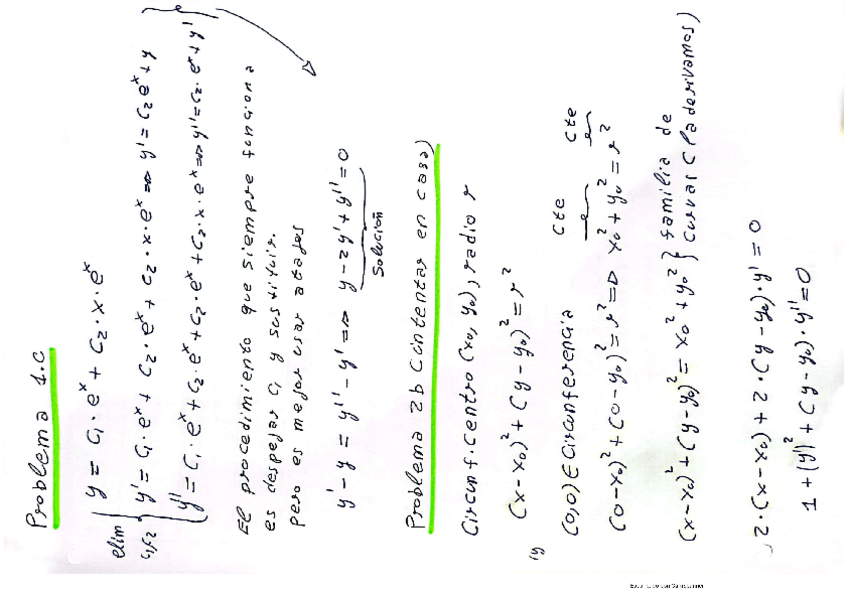 Problema 1.c
y = C₁·eˣ + C₂·x·eˣ
elim C₁,C₂ { y' = C₁·eˣ + C₂·eˣ + C₂·x·eˣ ⇒ y' = C₂eˣ + y
y'' = C₁·eˣ + C₂·eˣ + C₂·eˣ + C₂·x·eˣ ⇒ y'' = C₂·eˣ + y' }
El procedimiento que siempre funciona
es despejar C₁ y sustituir.
pero es mejor usar atajos
y' - y = y'' - y' ⇒ y - 2y' + y'' = 0
Solución
Problema 2b (intentar en casa)
Circunf. centro (x₀, y₀), radio r
(x - x₀)² + (y - y₀)² = r²
(0,0) ∈ Circunferencia
cte cte
(0 - x₀)² + (0 - y₀)² = r² ⇒ x₀² + y₀² = r²
(x - x₀)² + (y - y₀)² = x₀² + y₀² } familia de
curvas (la derivamos)
2·(x - x₀) + 2·(y - y₀)·y' = 0
1 + (y')² + (y - y₀)·y'' = 0